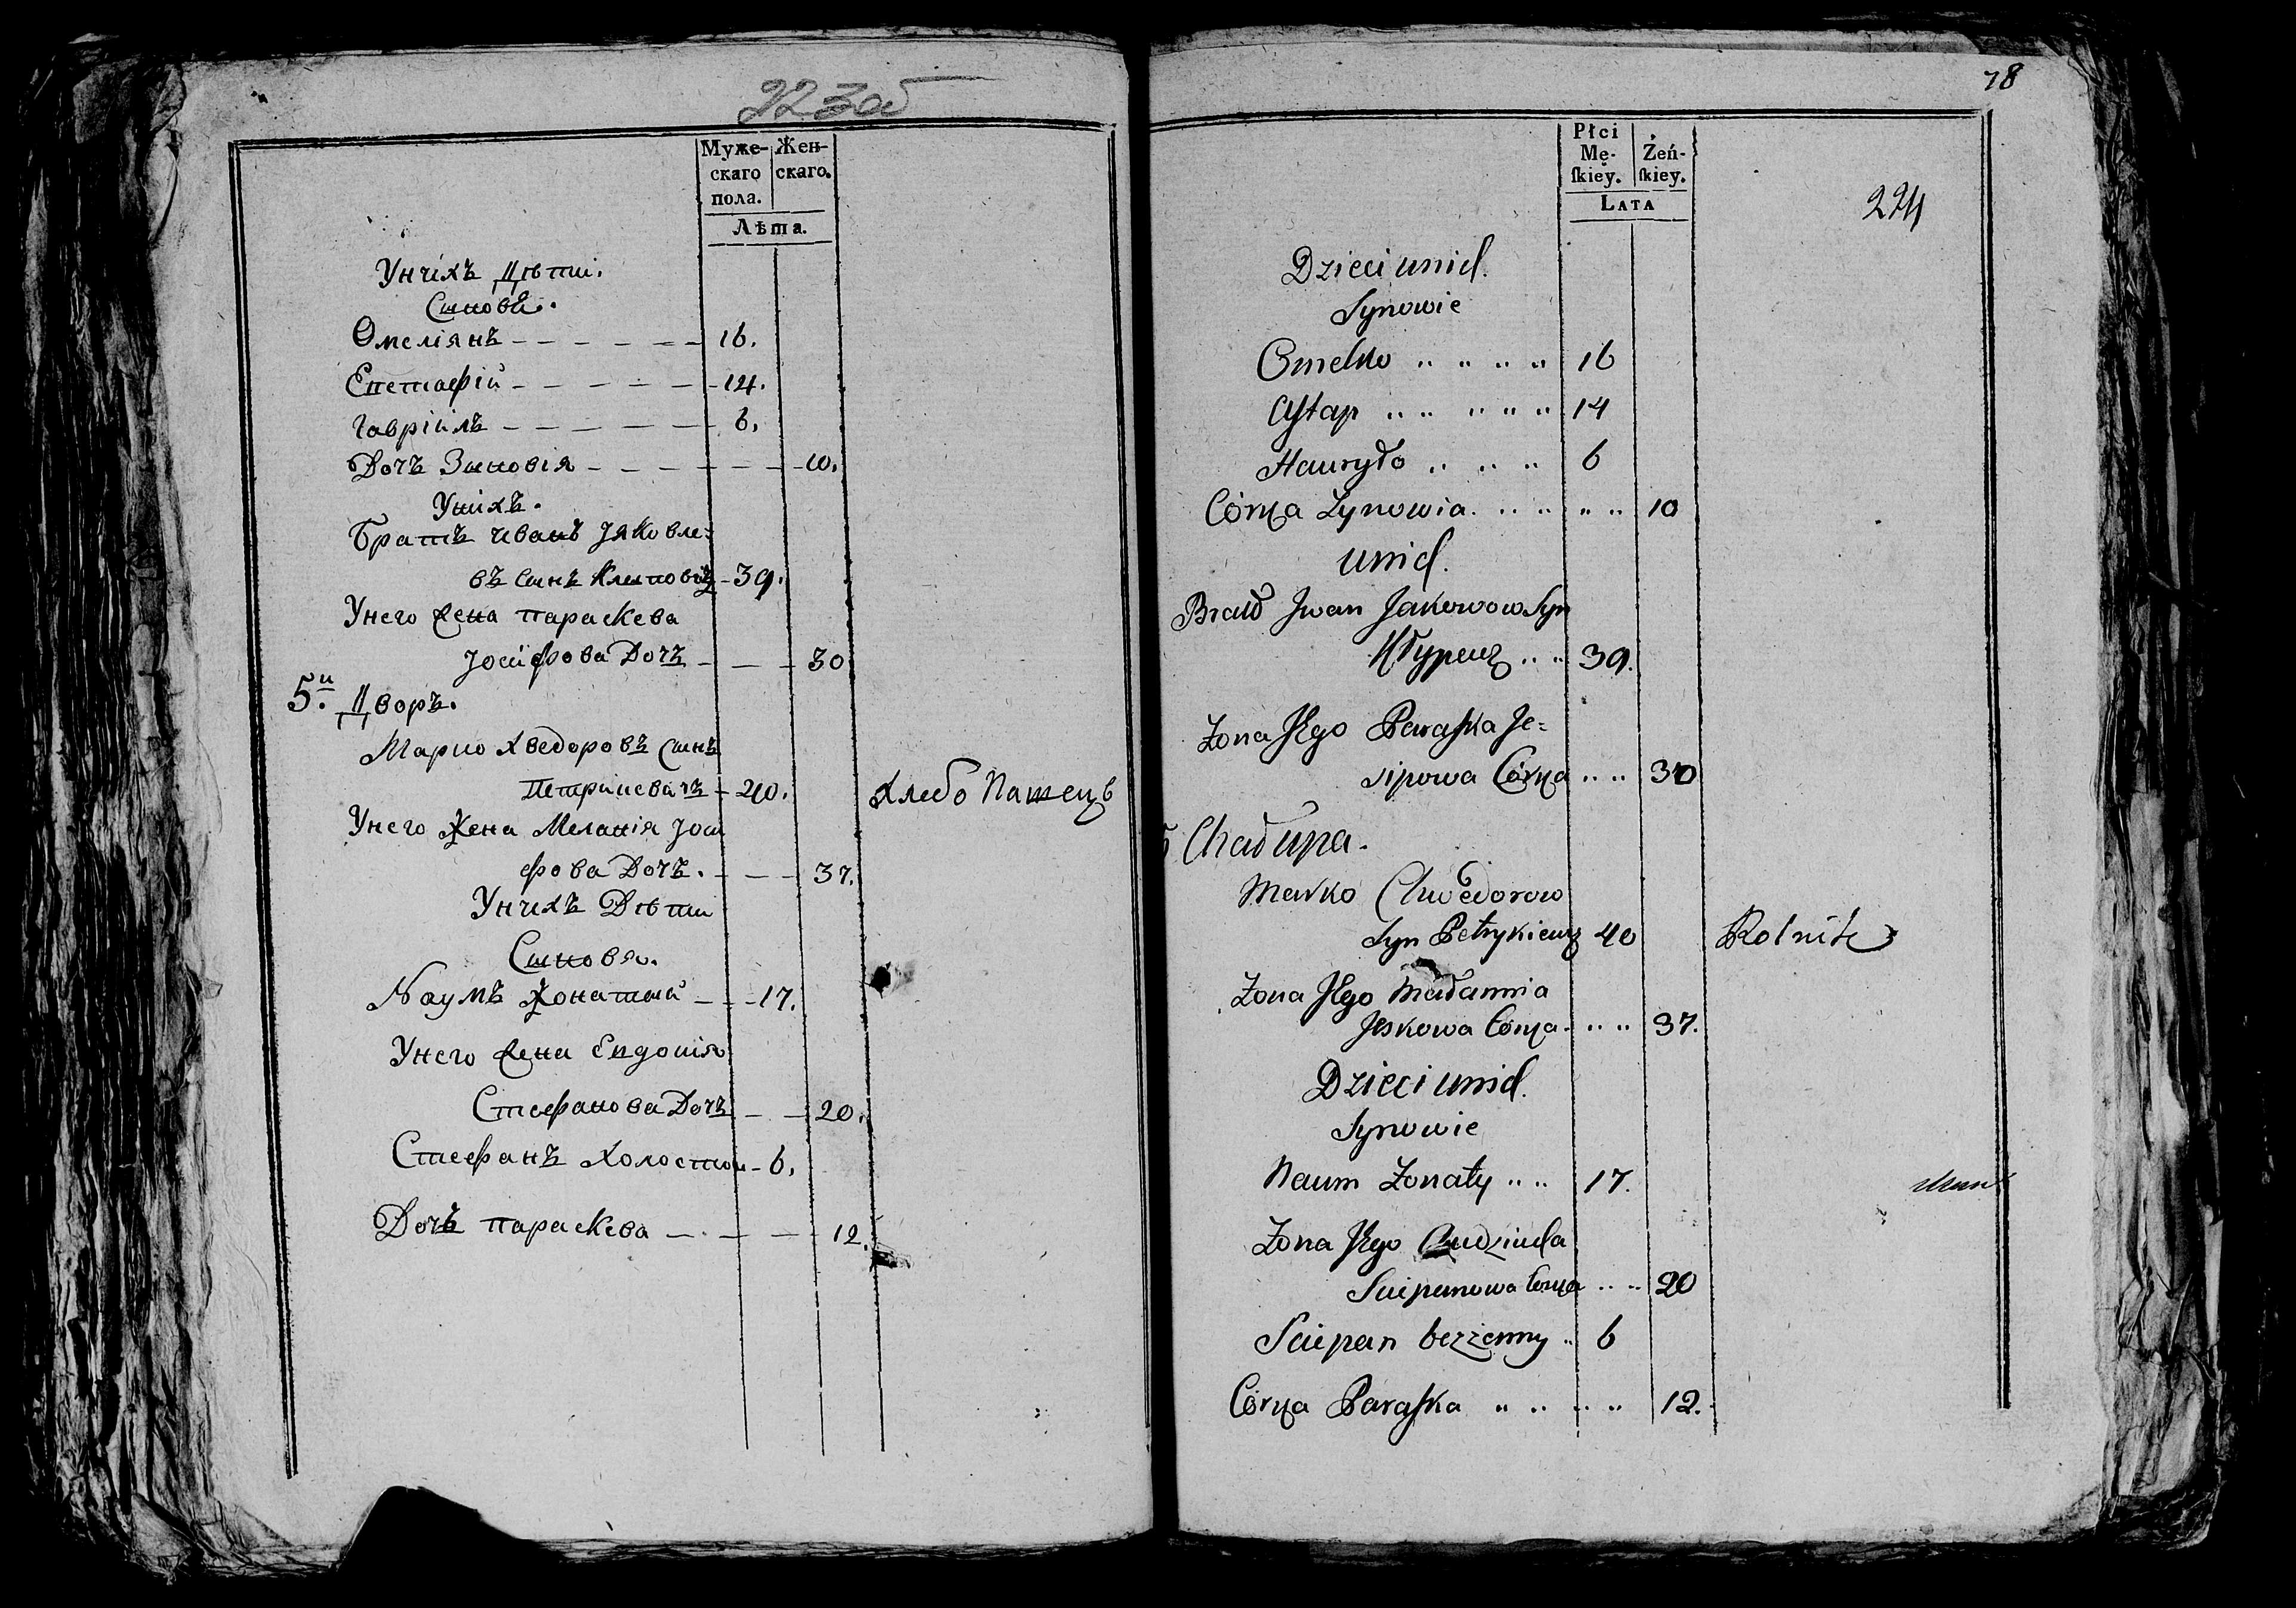 223об
Муже-
скаго
пола.
Жен-
скаго.
Лѣта.
Унихъ Дѣти.
Сыновя.
Омеліянъ - - - - - - 16.
Евстафій - - - - - - 14.
Гавріилъ - - - - - - 6.
Дочъ Зиновія - - - - - - 10.
Унихъ.
Братъ Иванъ Яковле=
въ Сынъ - 39.
Унего жена параскева
Іосифова Дочъ - - - 30
5й Дворъ.
Марко Хведоровъ Сынъ
Петрикевичъ - 40. Хлебо Пашецъ
Унего жена Меланія Іоси
фова Дочъ. - - - 37.
Унихъ Дѣти
Сыновя.
Наумъ Жонатый - - - 17.
Унего жена Евдокія
Стефанова Дочъ - - 20.
Стефанъ Холостый - 6.
Дочъ параскева - - - - 12.
78
Płci
Mę-
skiey.
Żeń-
skiey.
LATA
224
Dzieci unich.
Synowie
Omelko .. .. .. .. 16
Astap .. .. .. .. .. 14
Hauryło .. .. .. 6
Córka Zynowia. .. .. .. .. 10
unich.
Bratt Jwan Jakowow Syn
.. .. 39.
Żona Jego Paraska Je=
sipowa Córka .. .. 30
5 Chałupa.
Marko Chwedorow
Syn Petrykiewicz 40 Rolnik
Żona Jego Małannia
Jeskowa Córka. .. .. 37.
Dzieci unich.
Synowie
Naum Żonaty .. .. 17.
Żona Jego
Sciepanowa Corka .. .. 20
Sciepan bezżenny .. 6
Córka Paraska .. .. .. .. 12.